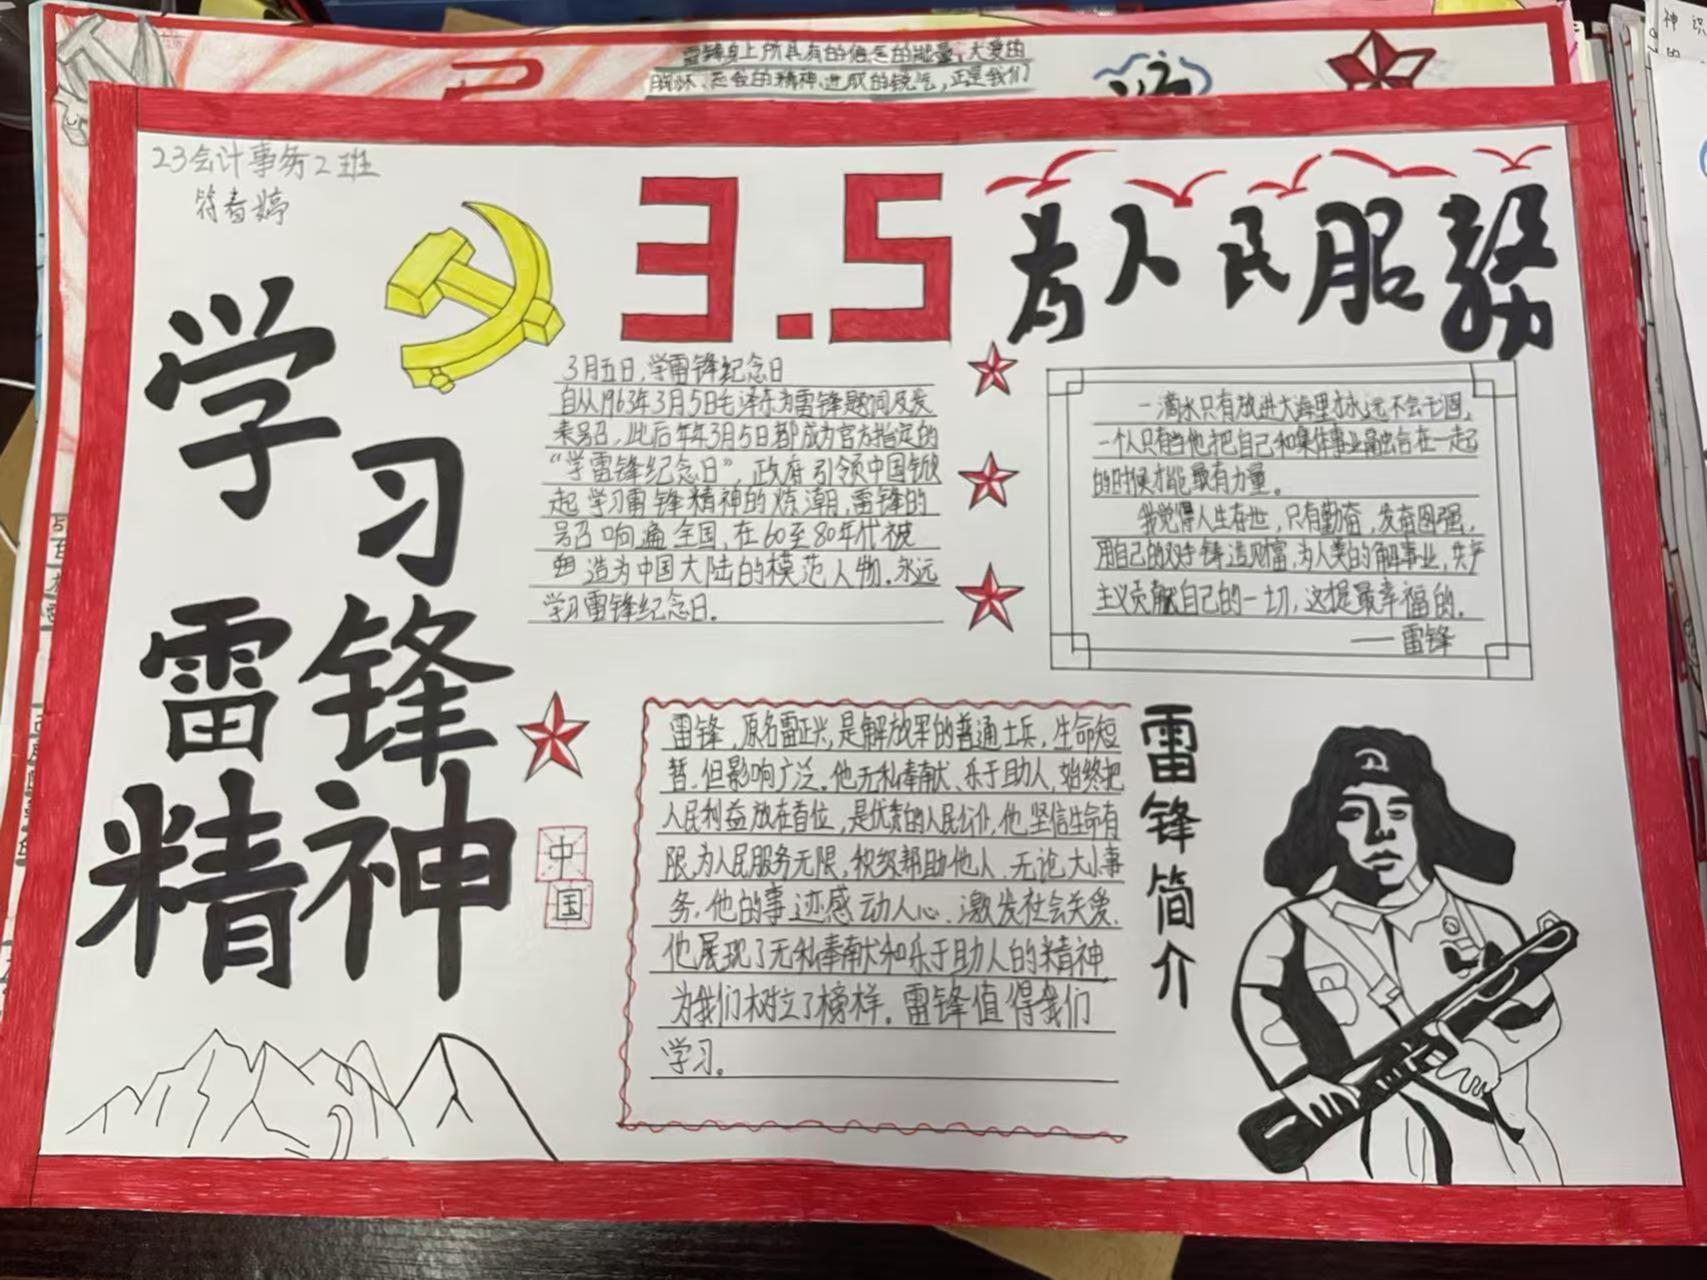 雷锋身上所具有的信念的能量、大爱的
胸怀、忘我的精神、进取的锐气,正是我们
23会计事务2班
符春婷
3.5
为人民服務
学习
雷锋
精神
中国
3月五日,学雷锋纪念日
自从1963年3月5日毛泽东为雷锋题词及发
来号召,此后年年3月5日都成为官方指定的
“学雷锋纪念日”,政府引领中国掀
起学习雷锋精神的炼潮,雷锋的
号召响遍全国,在60至80年代被
塑造为中国大陆的模范人物.永远
学习雷锋纪念日。
一滴水只有放进大海里才永远不会干涸,
一个人只有当他把自己和集体事业融合在一起
的时候才能最有力量。
我觉得人生在世,只有勤奋,发奋图强,
用自己的双手铸造财富,为人类的解事业,共产
主义贡献自己的一切,这才是最幸福的.
——雷锋
雷锋简介
雷锋,原名雷正兴,是解放军的普通士兵,生命短
暂.但影响广泛.他无私奉献、乐于助人,始终把
人民利益放在首位,是优秀的人民公仆,他坚信生命有
限,为人民服务无限,积极帮助他人.无论大小事
务.他的事迹感动人心.激发社会关爱.
他展现了无私奉献和乐于助人的精神
为我们树立了榜样。雷锋值得我们
学习。